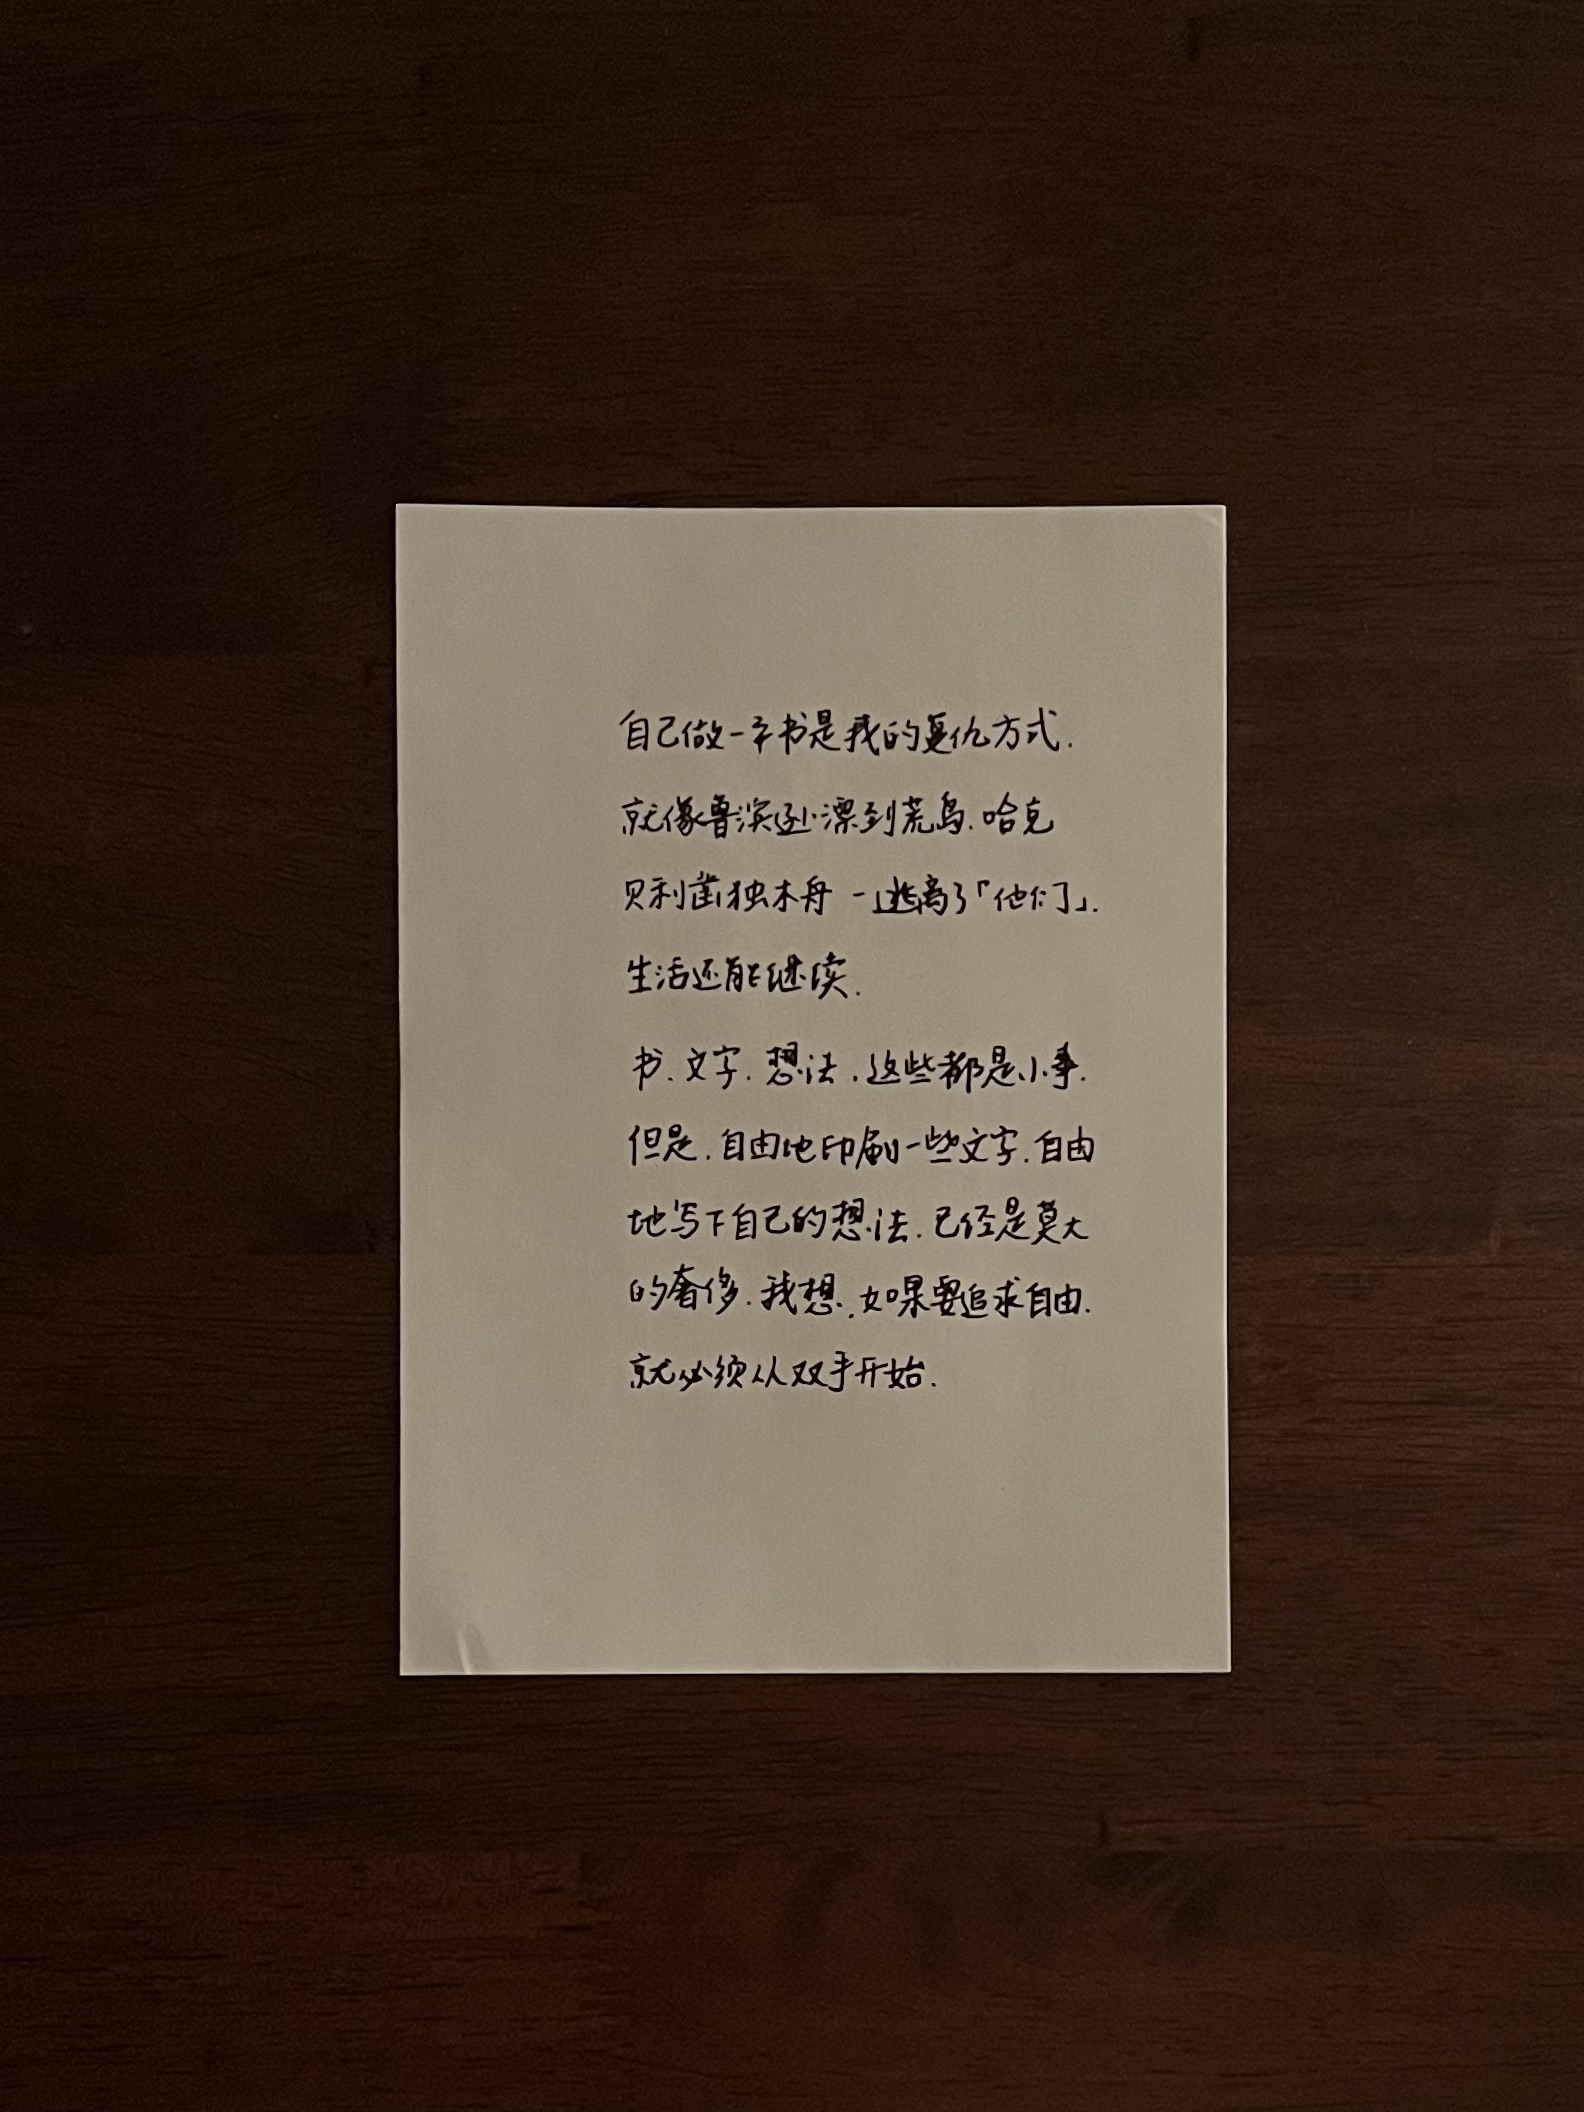 自己做一本书是我的复仇方式.
就像鲁滨逊漂到荒岛.哈克
贝利凿独木舟 - 逃离了「他们」.
生活还能继续.
书.文字.想法.这些都是小事.
但是.自由地印刷一些文字.自由
地写下自己的想法.已经是莫大
的奢侈.我想.如果要追求自由.
就必须从双手开始.